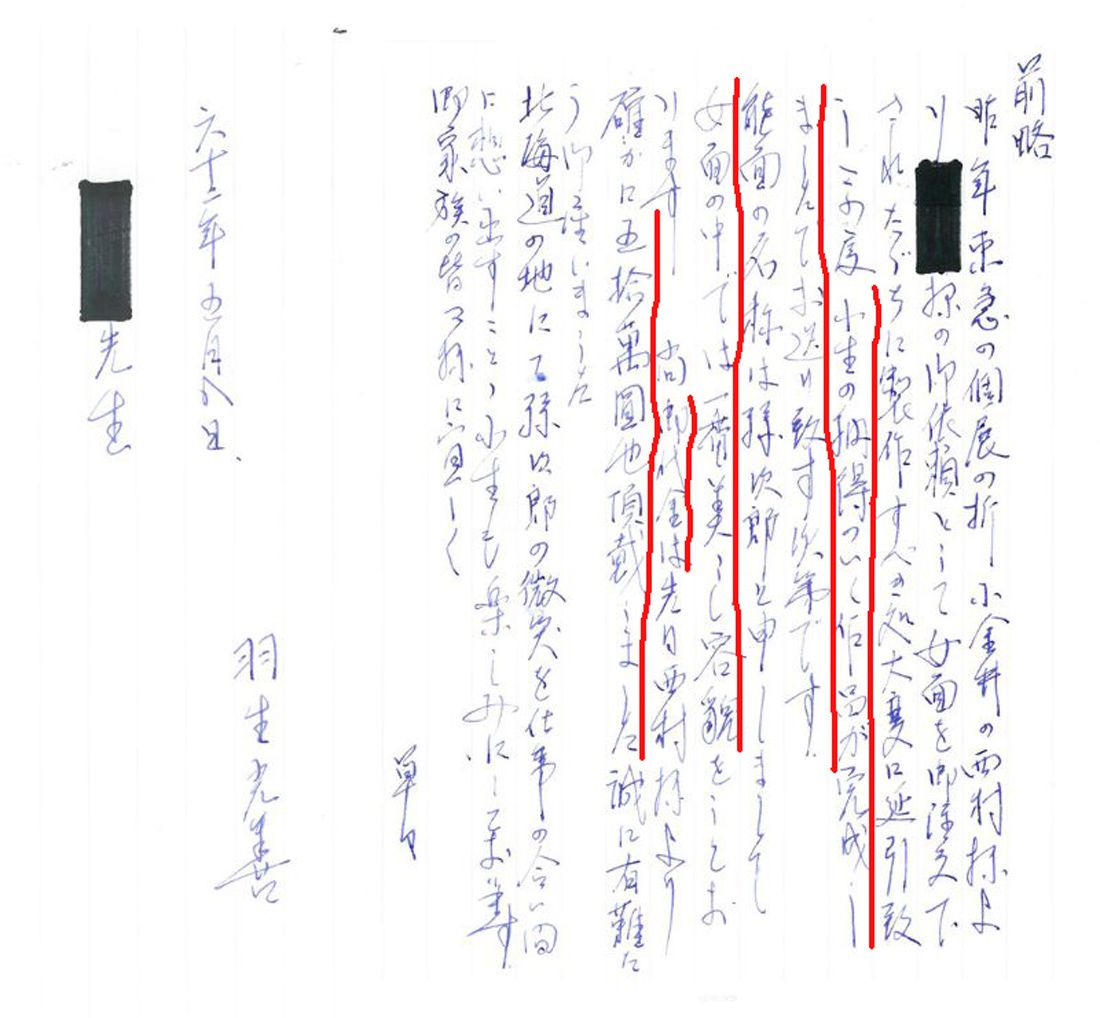 前略
昨年東急の個展の折小金井の西村様よ
り 様の御依頼として女面を御注文下
されたゞちに製作すべき処大変に延引致
しこの度小生の納得のいく作品が完成し
ましたてお送り致す次第です
能面の名称は孫次郎と申しまして
女面の中では一番美しし容貌をしてお
ります 尚御代金は先日西村様より
確かに五拾萬圓也頂戴しました誠に有難た
う御座いました
北海道の地にて孫次郎の微笑を仕事の合い間
に想い出すこと小生も楽しみにして居ます
御家族の皆々様に宜しく
草々
六十二年五月八日
羽生光善
先生